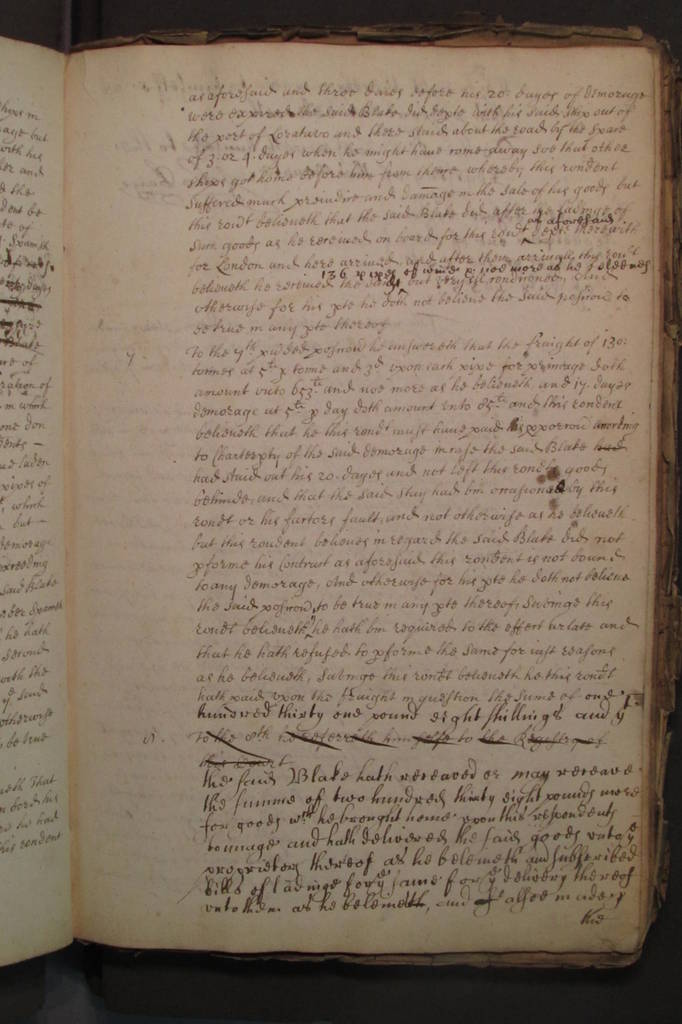 as aforesaid and three daies before his 20: dayes of demorage
were expired the said Blake did depte with his said ship out of
the port of Loratavo and there staid about the road by the space
of 3. or 4. dayes when he might have come away soe that other
ships got home before him from thence, whereby this rondent
suffered much prejudice and damage in the sale of his goods but
this rondt beleiveth that the said Blake did after the lading of
such goods as he received on board for this rondt depte therewith
as aforesaid
for London and here arrived, and after their arrivall this rondt
136 pipes of wines p noe more as he beleeves
beleiveth he received the but And
otherwise for his pte he doth not beleive the said posicion to
be true in any pte thereof
7. To the 7th pvided posicion he answereth that the fraight of 130:
tonnes at 5li p tonne and 3d vpon each pipe for primage doth
amount vnto 653li and noe more as he beleiveth, and 17. dayes
demorage at 5li p day doth amount vnto 85li and this rondent
beleiveth that he this rondt must have paid his pporcon according
to Charterpty of the said demorage in case the said Blake had
had staid out his 20. dayes and not left this rondts goods
behinde, and that the said stay had bin occasioned by this
rondt or his factors fault, and not otherwise as he beleiveth
but this rondent beleives in regard the said Blake did not
pforme his contract as aforesaid this rondent is not bound
to any demorage, And otherwise for his pte he doth not beleive
the said posicion to be true in any pte thereof, Savinge this
rondt beleiveth he hath bin required to the effect arlate and
that he hath refused to pforme the same for just reasons
as he beleiveth, Savinge this rondt beleiveth he this rondt
hath paid vpon the fraight in question the sume of one
hundred thirty one pound eight shillings and yt
8. To the 8th he referreth himselfe to the Registry of
this Court
the said Blake hath receaved or may receave
the summe of two hundred thirty eight pounds more
for goods wch he brought home vpon this respondents
tonnage and hath delivered the said goods vnto ye
proprietors thereof as he beleiveth and subscribed
bills of ladinge for ye same for ye delivery thereof
vnto them as he beleiveth, and alsoe made
the